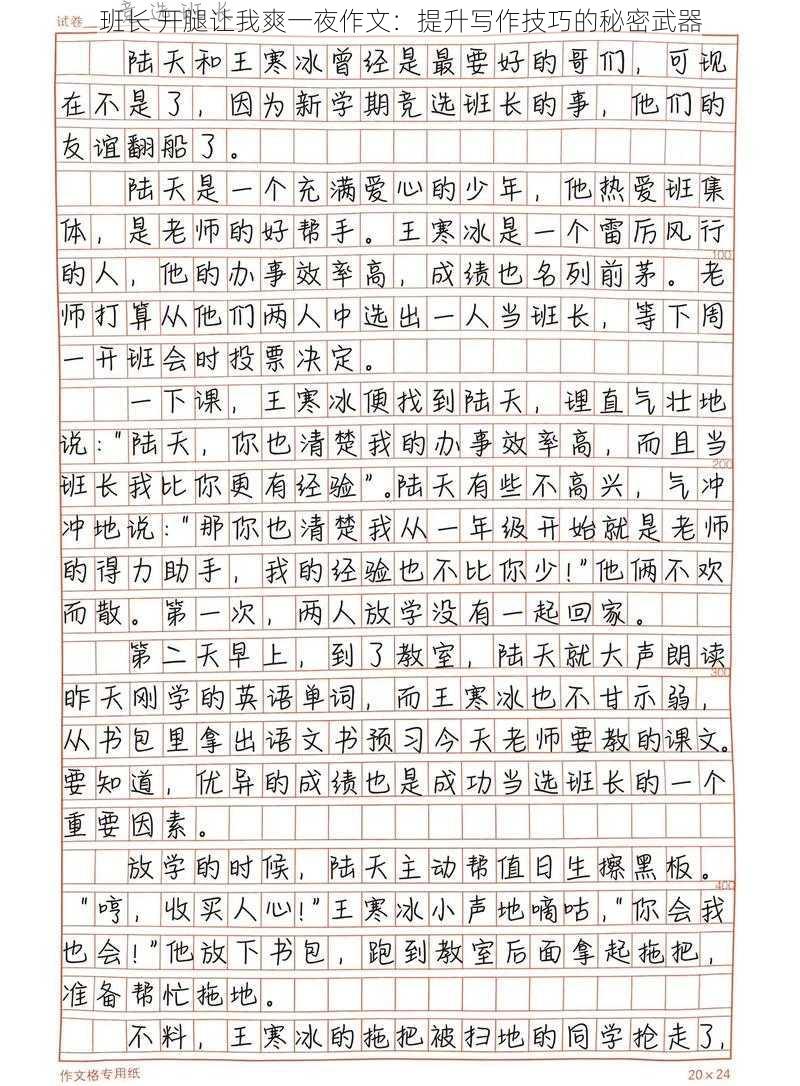 班长 开腿让我爽一夜作文：提升写作技巧的秘密武器
试卷 竞选班长
陆天和王寒冰曾经是最要好的哥们，可现
在不是了，因为新学期竞选班长的事，他们的
友谊翻船了。
陆天是一个充满爱心的少年，他热爱班集
体，是老师的好帮手。王寒冰是一个雷厉风行
100
的人，他的办事效率高，成绩也名列前茅。老
师打算从他们两人中选出一人当班长，等下周
一开班会时投票决定。
一下课，王寒冰便找到陆天，理直气壮地
说："陆天，你也清楚我的办事效率高，而且当
200
班长我比你更有经验"。陆天有些不高兴，气冲
冲地说："那你也清楚我从一年级开始就是老师
的得力助手，我的经验也不比你少！"他俩不欢
而散。第一次，两人放学没有一起回家。
第二天早上，到了教室，陆天就大声朗读
300
昨天刚学的英语单词，而王寒冰也不甘示弱，
从书包里拿出语文书预习今天老师要教的课文。
要知道，优异的成绩也是成功当选班长的一个
重要因素。
放学的时候，陆天主动帮值日生擦黑板。
400
"哼，收买人心！"王寒冰小声地嘀咕，"你会我
也会！"他放下书包，跑到教室后面拿起拖把，
准备帮忙拖地。
不料，王寒冰的拖把被扫地的同学抢走了，
作文格专用纸 20×24